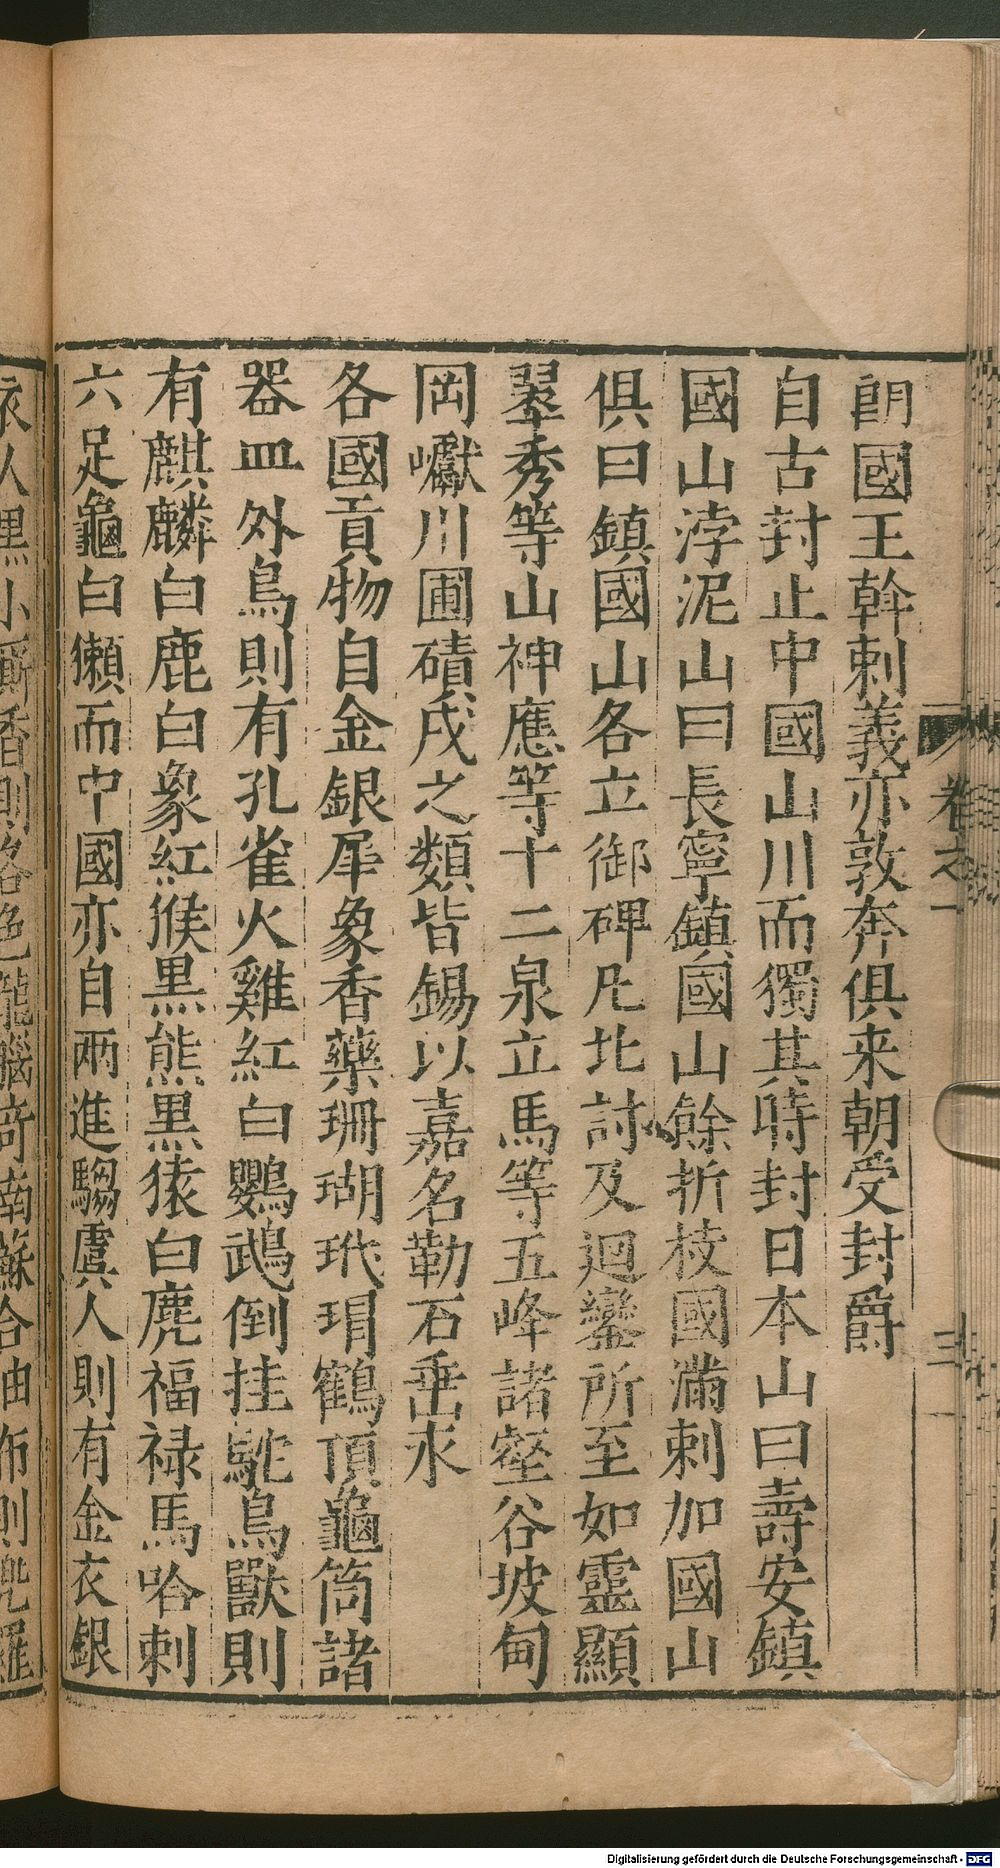 卷之一
三
朗國王幹剌義亦敦奔俱来朝受封爵
自古封止中國山川而獨其時封日本山曰壽安鎮
國山浡泥山曰長寧鎮國山餘折枝國滿剌加國山
俱曰鎮國山各立御碑凡北討及迴鑾所至如靈顯
翠秀等山神應等十二泉立馬等五峰諸壑谷坡甸
岡巘川圃磧戍之類皆錫以嘉名勒石垂永
各國貢物自金銀犀象香藥珊瑚玳瑁鶴頂龜筒諸
器皿外鳥則有孔雀火雞紅白鸚鵡倒挂駝鳥獸則
有麒麟白鹿白象紅猴黑熊黑猿白麂福禄馬哈剌
六足龜白獺而中國亦自兩進騶虞人則有金衣銀
黑小廝香則各色龍腦竒南蘇合油布則兜羅
Digitalisierung gefördert durch die Deutsche Forschungsgemeinschaft - DFG